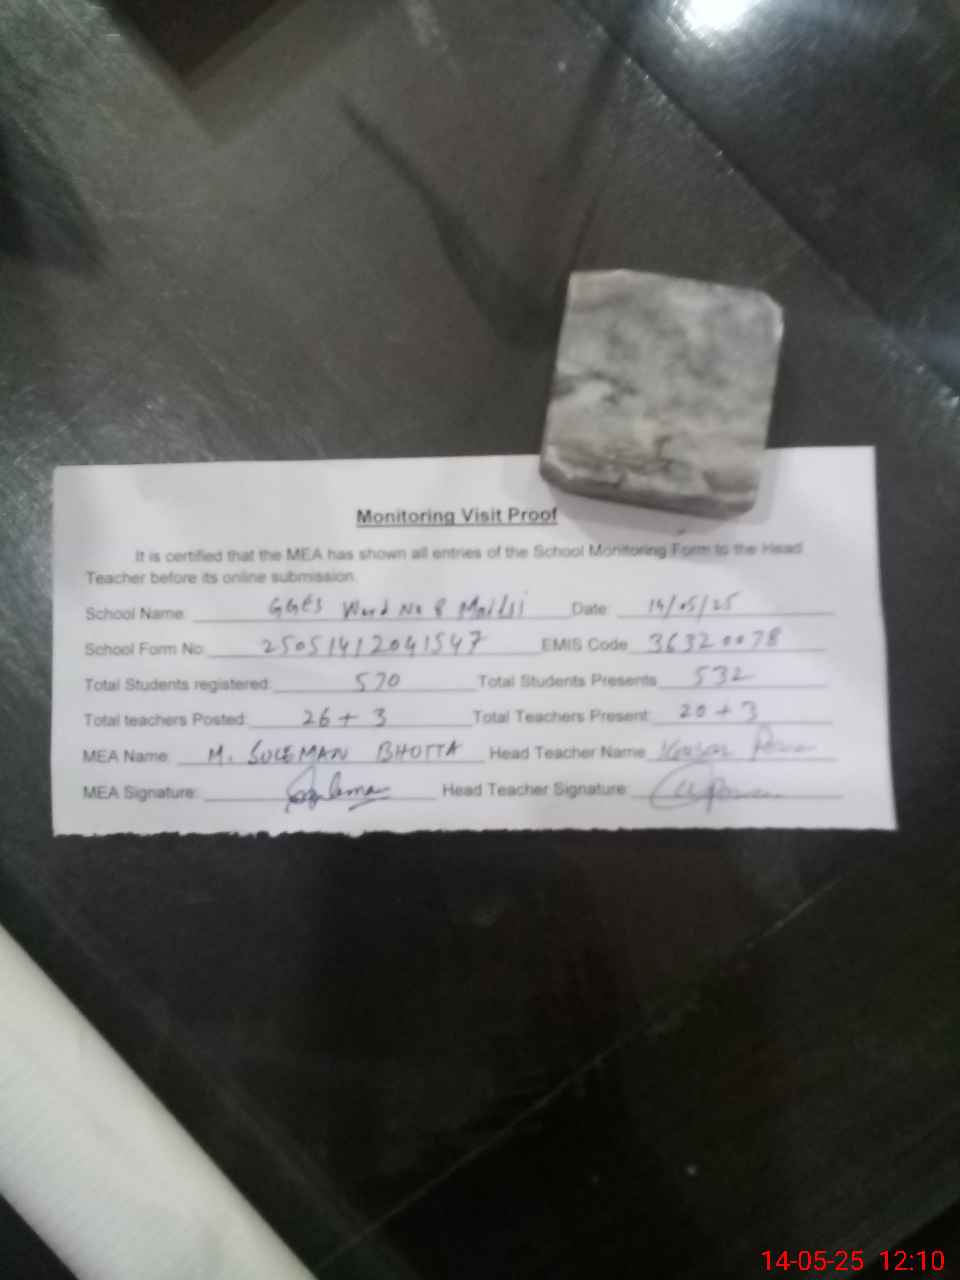 Monitoring Visit Proof
It is certified that the MEA has shown all entries of the School Monitoring Form to the Head
Teacher before its online submission.
School Name: GGES Ward No 8 Mailsi Date: 14/05/25
School Form No: 25051412041547 EMIS Code 36320078
Total Students registered: 570 Total Students Presents 532
Total teachers Posted: 26 + 3 Total Teachers Present: 20 + 3
MEA Name: M. SULEMAN BHOTTA Head Teacher Name
MEA Signature: Head Teacher Signature:
14-05-25 12:10